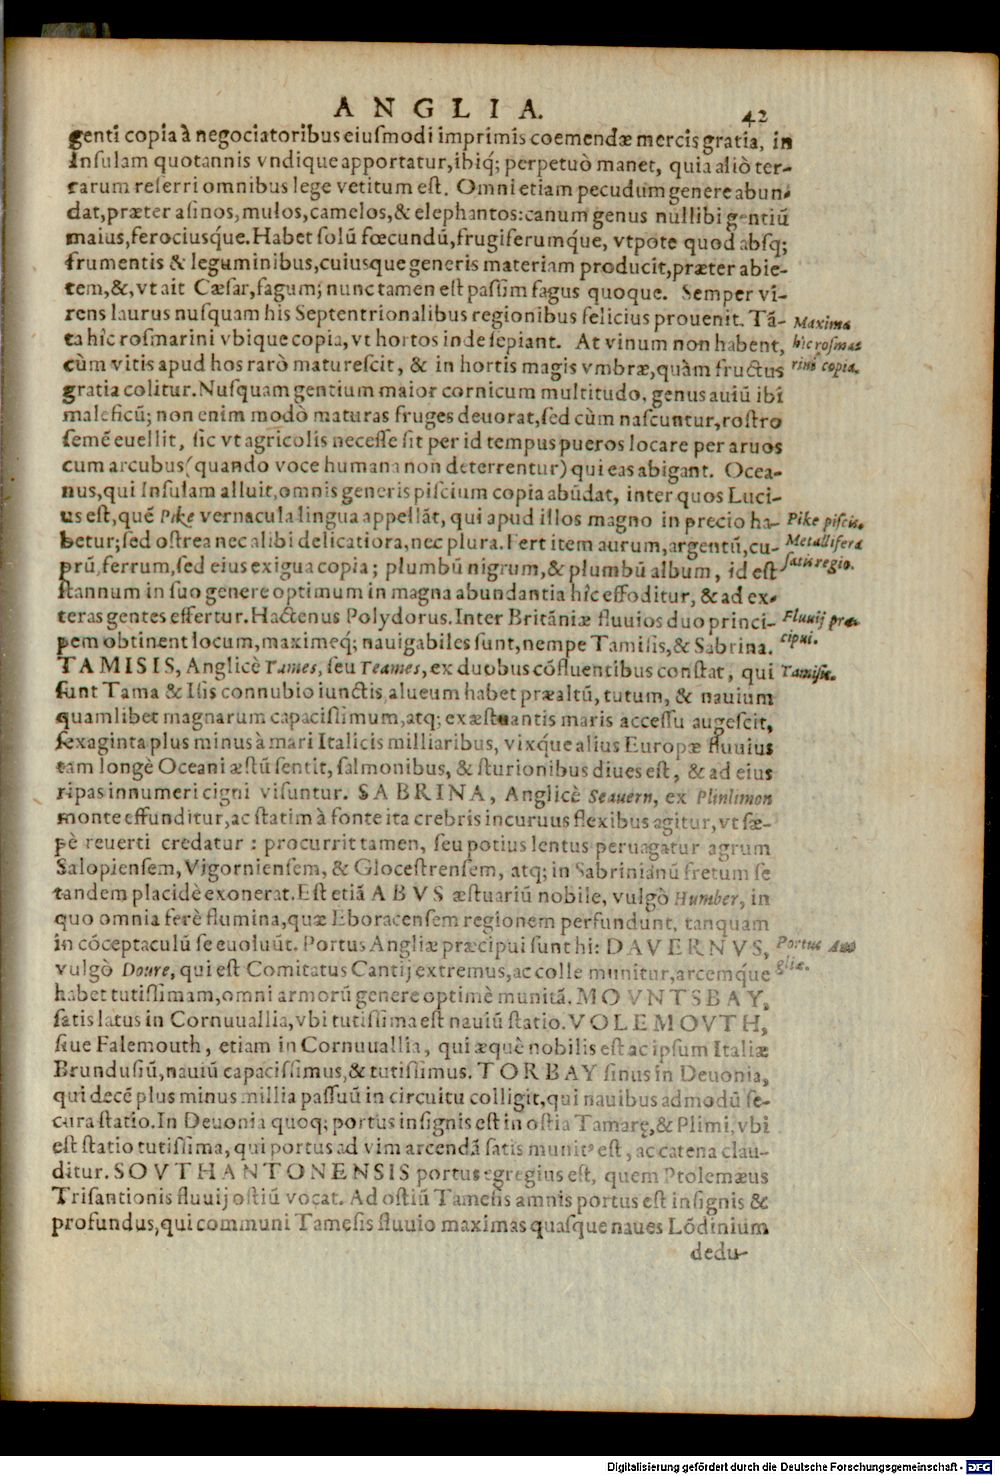 ANGLIA. 42
genti copia à negociatoribus eiuſmodi imprimis coemendæ mercis gratia, in
Inſulam quotannis vndique apportatur, ibiq́; perpetuò manet, quia aliò ter-
rarum referri omnibus lege vetitum eſt. Omni etiam pecudum genere abun-
dat, præter aſinos, mulos, camelos, & elephantos: canum genus nullibi gentiū
maius, ferociusq́ue. Habet ſolū fœcundū, frugiferumq́ue, vtpote quod abſq;
frumentis & leguminibus, cuiusque generis materiam producit, præter abie-
tem, &, vt ait Cæſar, fagum; nunc tamen eſt paſſim fagus quoque. Semper vi-
rens laurus nuſquam his Septentrionalibus regionibus felicius prouenit. Tā-
ta hîc roſmarini vbique copia, vt hortos inde ſepiant. At vinum non habent,
Maxima
hîc roſma-
rini copia.
cùm vitis apud hos rarò mature ſcit, & in hortis magis vmbræ, quàm fructus
gratia colitur. Nuſquam gentium maior cornicum multitudo, genus auiū ibi
maleficū; non enim modò maturas fruges deuorat, ſed cùm naſcuntur, roſtro
ſemē euellit, ſic vt agricolis neceſſe ſit per id tempus pueros locare per aruos
cum arcubus (quando voce humana non deterrentur) qui eas abigant. Ocea-
nus, qui Inſulam alluit, omnis generis piſcium copia abūdat, inter quos Luci-
us eſt, quē Pike vernacula lingua appellāt, qui apud illos magno in precio ha-
Pike piſcis.
betur; ſed oſtrea nec alibi delicatiora, nec plura. Fert item aurum, argentū, cu-
Metallifera
ſatis regio.
prū, ferrum, ſed eius exigua copia; plumbū nigrum, & plumbū album, id eſt
ſtannum in ſuo genere optimum in magna abundantia hîc effoditur, & ad ex-
teras gentes effertur. Hactenus Polydorus. Inter Britāniæ fluuios duo princi-
Fluuij præ-
cipui.
pem obtinent locum, maximeq́; nauigabiles ſunt, nempe Tamiſis, & Sabrina.
TAMISIS, Anglicè Tames, ſeu Teames, ex duobus cōfluentibus conſtat, qui
Tamiſis.
ſunt Tama & Iſis connubio iunctis, alueum habet præaltū, tutum, & nauium
quamlibet magnarum capaciſſimum, atq; exæſtuantis maris acceſſu augeſcit,
ſexaginta plus minus à mari Italicis milliaribus, vixq́ue alius Europæ fluuius
tam longè Oceani æſtū ſentit, ſalmonibus, & ſturionibus diues eſt, & ad eius
ripas innumeri cigni viſuntur. SABRINA, Anglicè Seauern, ex Plinlimon
monte effunditur, ac ſtatim à fonte ita crebris incuruus flexibus agitur, vt ſæ-
pè reuerti credatur: procurrit tamen, ſeu potius lentus peruagatur agrum
Salopienſem, Vigornienſem, & Gloceſtrenſem, atq; in Sabrinianū fretum ſe
tandem placidè exonerat. Eſt etiā ABVS æſtuariū nobile, vulgò Humber, in
quo omnia ferè flumina, quæ Eboracenſem regionem perfundunt, tanquam
in cōceptaculū ſe euoluūt. Portus Angliæ præcipui ſunt hi: DAVERNVS,
Portus An-
gliæ.
vulgò Doure, qui eſt Comitatus Cantij extremus, ac colle munitur, arcemq́ue
habet tutiſſimam, omni armorū genere optimè munitā. MOVNTSBAY,
ſatis latus in Cornuuallia, vbi tutiſſima eſt nauiū ſtatio. VOLEMOVTH,
ſiue Falemouth, etiam in Cornuuallia, qui æquè nobilis eſt ac ipſum Italiæ
Brunduſiū, nauiū capaciſſimus, & tutiſſimus. TORBAY ſinus in Deuonia,
qui decē plus minus millia paſſuū in circuitu colligit, qui nauibus admodū ſe-
cura ſtatio. In Deuonia quoq; portus inſignis eſt in oſtia Tamarę, & Plimi, vbi
eſt ſtatio tutiſſima, qui portus ad vim arcendā ſatis munitꝰ eſt, ac catena clau-
ditur. SOVTHANTONENSIS portus egregius eſt, quem Ptolemæus
Triſantionis fluuij oſtiū vocat. Ad oſtiū Tameſis amnis portus eſt inſignis &
profundus, qui communi Tameſis fluuio maximas quaſque naues Lōdinium
dedu-
Digitalisierung gefördert durch die Deutsche Forschungsgemeinschaft - DFG